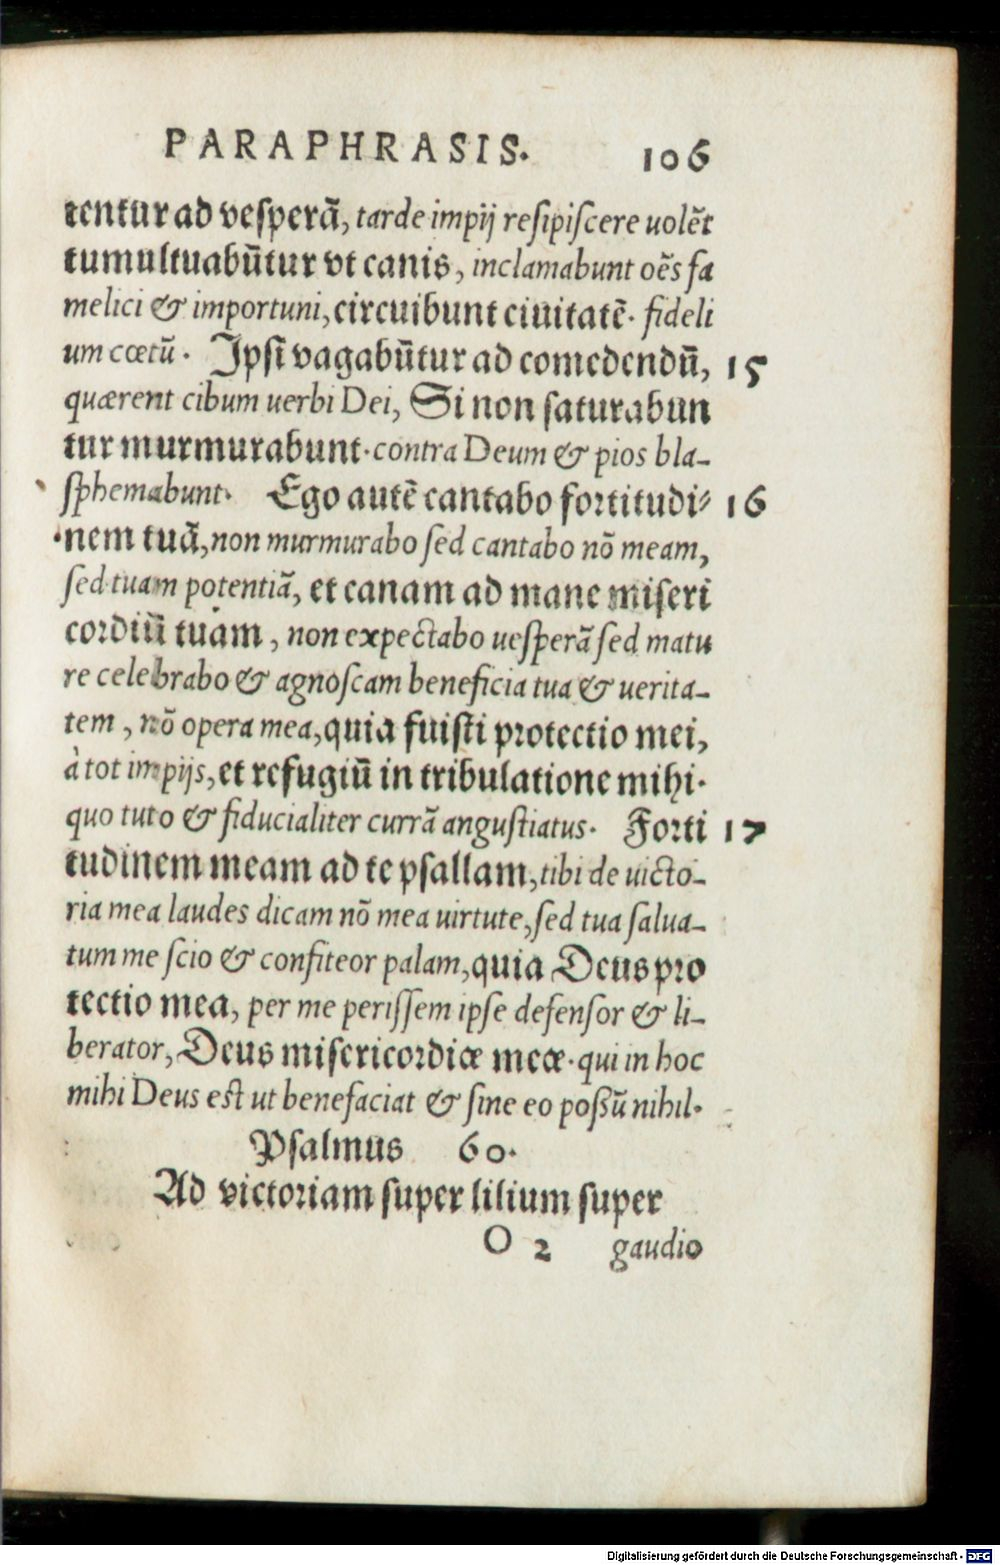 PARAPHRASIS. 106
tentur ad vesperã, tarde impij resipiscere uolẽt
tumultuabũtur vt canis, inclamabunt oẽs fa
melici & importuni, circuibunt ciuitatẽ. fideli
um cœtũ. Ipsĩ vagabũtur ad comedendũ, 15
quærent cibum uerbi Dei, Si non saturabun
tur murmurabunt. contra Deum & pios bla-
sphemabunt. Ego autẽ cantabo fortitudi- 16
nem tuã, non murmurabo sed cantabo nõ meam,
sed tuam potentiã, et canam ad mane miseri
cordiũ tuam, non expectabo uesperã sed matu
re celebrabo & agnoscam beneficia tua & uerita-
tem, nõ opera mea, quia fuisti protectio mei,
à tot impijs, et refugiũ in tribulatione mihi.
quo tuto & fiducialiter currã angustiatus. Forti 17
tudinem meam ad te psallam, tibi de uicto-
ria mea laudes dicam nõ mea uirtute, sed tua salua-
tum me scio & confiteor palam, quia Deus pro
tectio mea, per me perissem ipse defensor & li-
berator, Deus misericordiæ meæ. qui in hoc
mihi Deus est ut benefaciat & sine eo possũ nihil.
Psalmus 60.
Ad victoriam super lilium super
O 2 gaudio
Digitalisierung gefördert durch die Deutsche Forschungsgemeinschaft - DFG